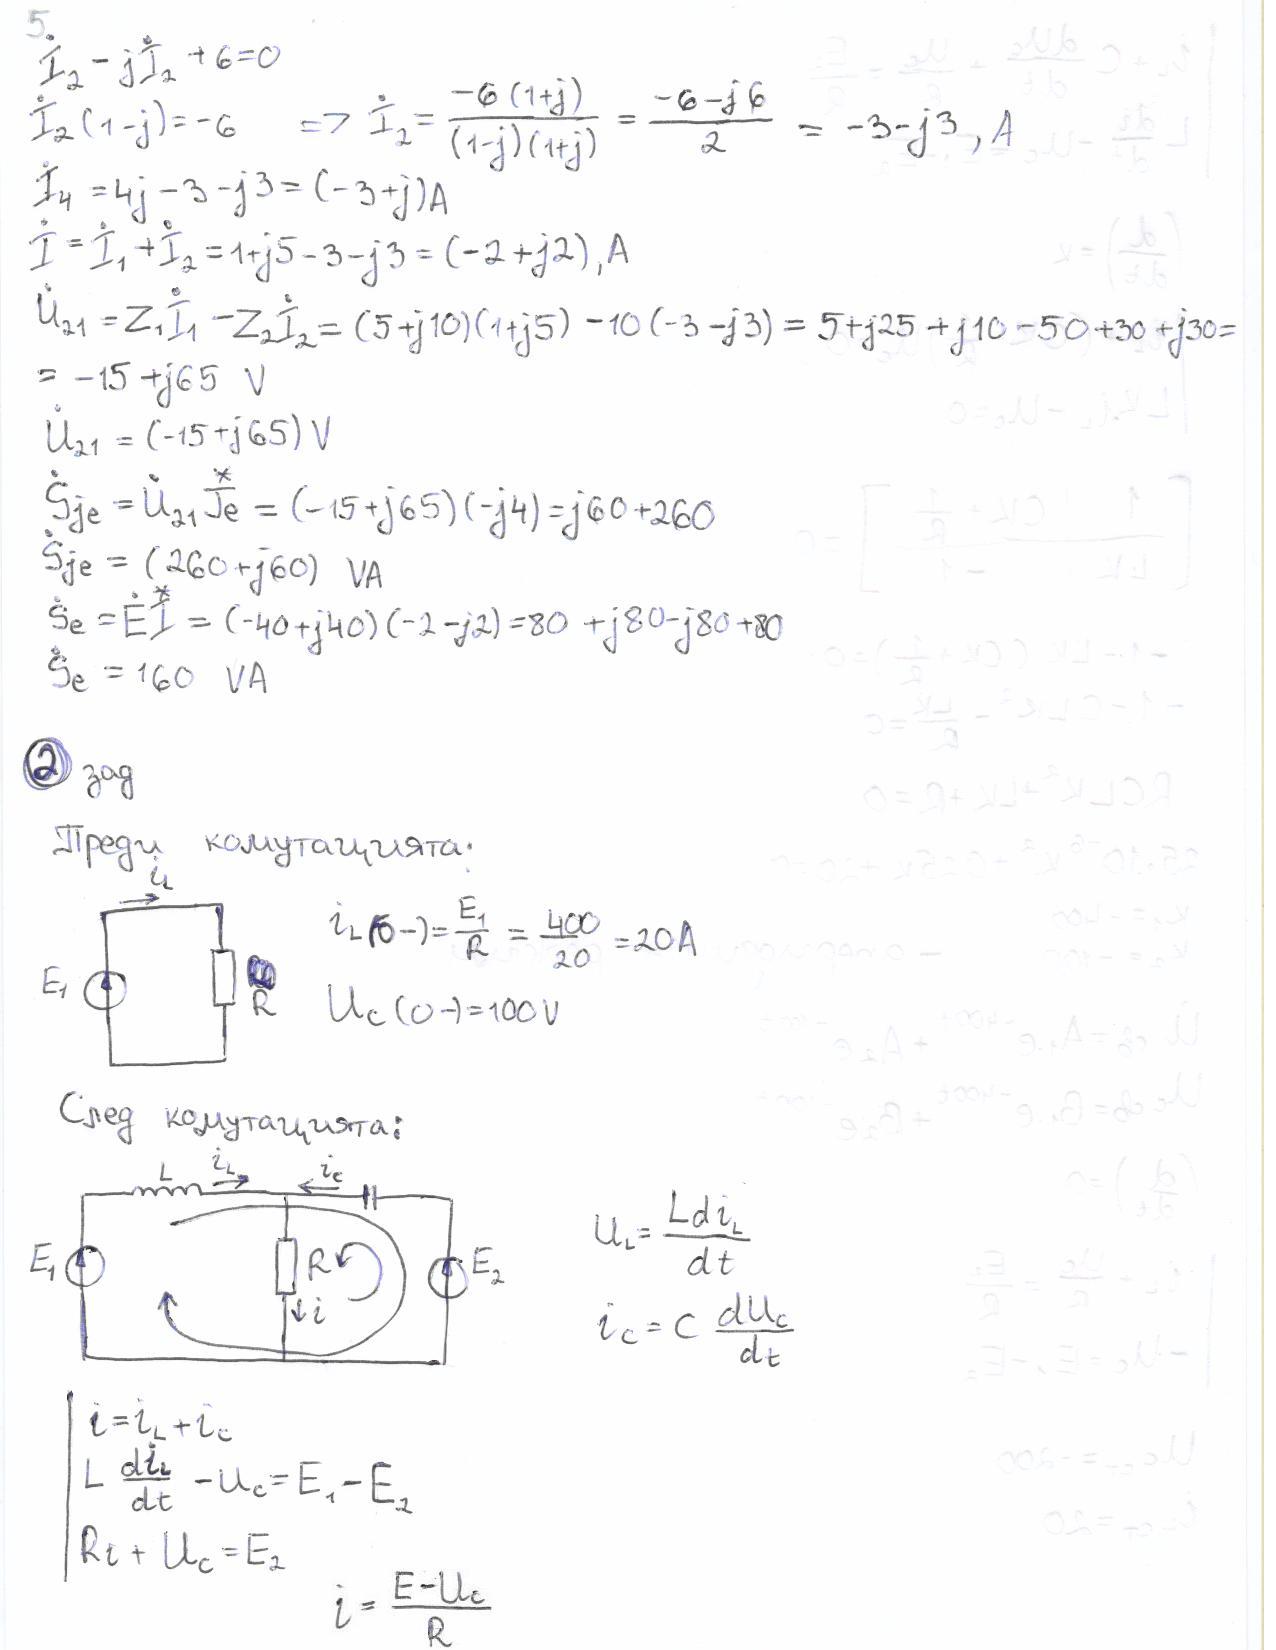 5.
İ₂ - jİ₂ + 6 = 0
İ₂(1-j) = -6 => İ₂ = -6(1+j) / (1-j)(1+j) = -6-j6 / 2 = -3-j3, A
İ₄ = 4j - 3 - j3 = (-3+j)A
İ = İ₁ + İ₂ = 1+j5-3-j3 = (-2+j2), A
U̇₂₁ = Z₁İ₁ - Z₂İ₂ = (5+j10)(1+j5) - 10(-3-j3) = 5+j25+j10-50+30+j30 =
= -15+j65 V
U̇₂₁ = (-15+j65)V
Ṡje = U̇₂₁ J*e = (-15+j65)(-j4) = j60+260
Ṡje = (260+j60) VA
Ṡe = Ė I* = (-40+j40)(-2-j2) = 80+j80-j80+80
Ṡe = 160 VA
② зад
Преди комутацията:
iL
E₁
R
iL(0-) = E₁/R = 400/20 = 20A
Uc(0-) = 100V
След комутацията:
L
iL
ic
E₁
R
i
E₂
UL = L diL / dt
ic = C dUc / dt
i = iL + ic
L diL/dt - Uc = E₁ - E₂
Ri + Uc = E₂
i = E-Uc / R